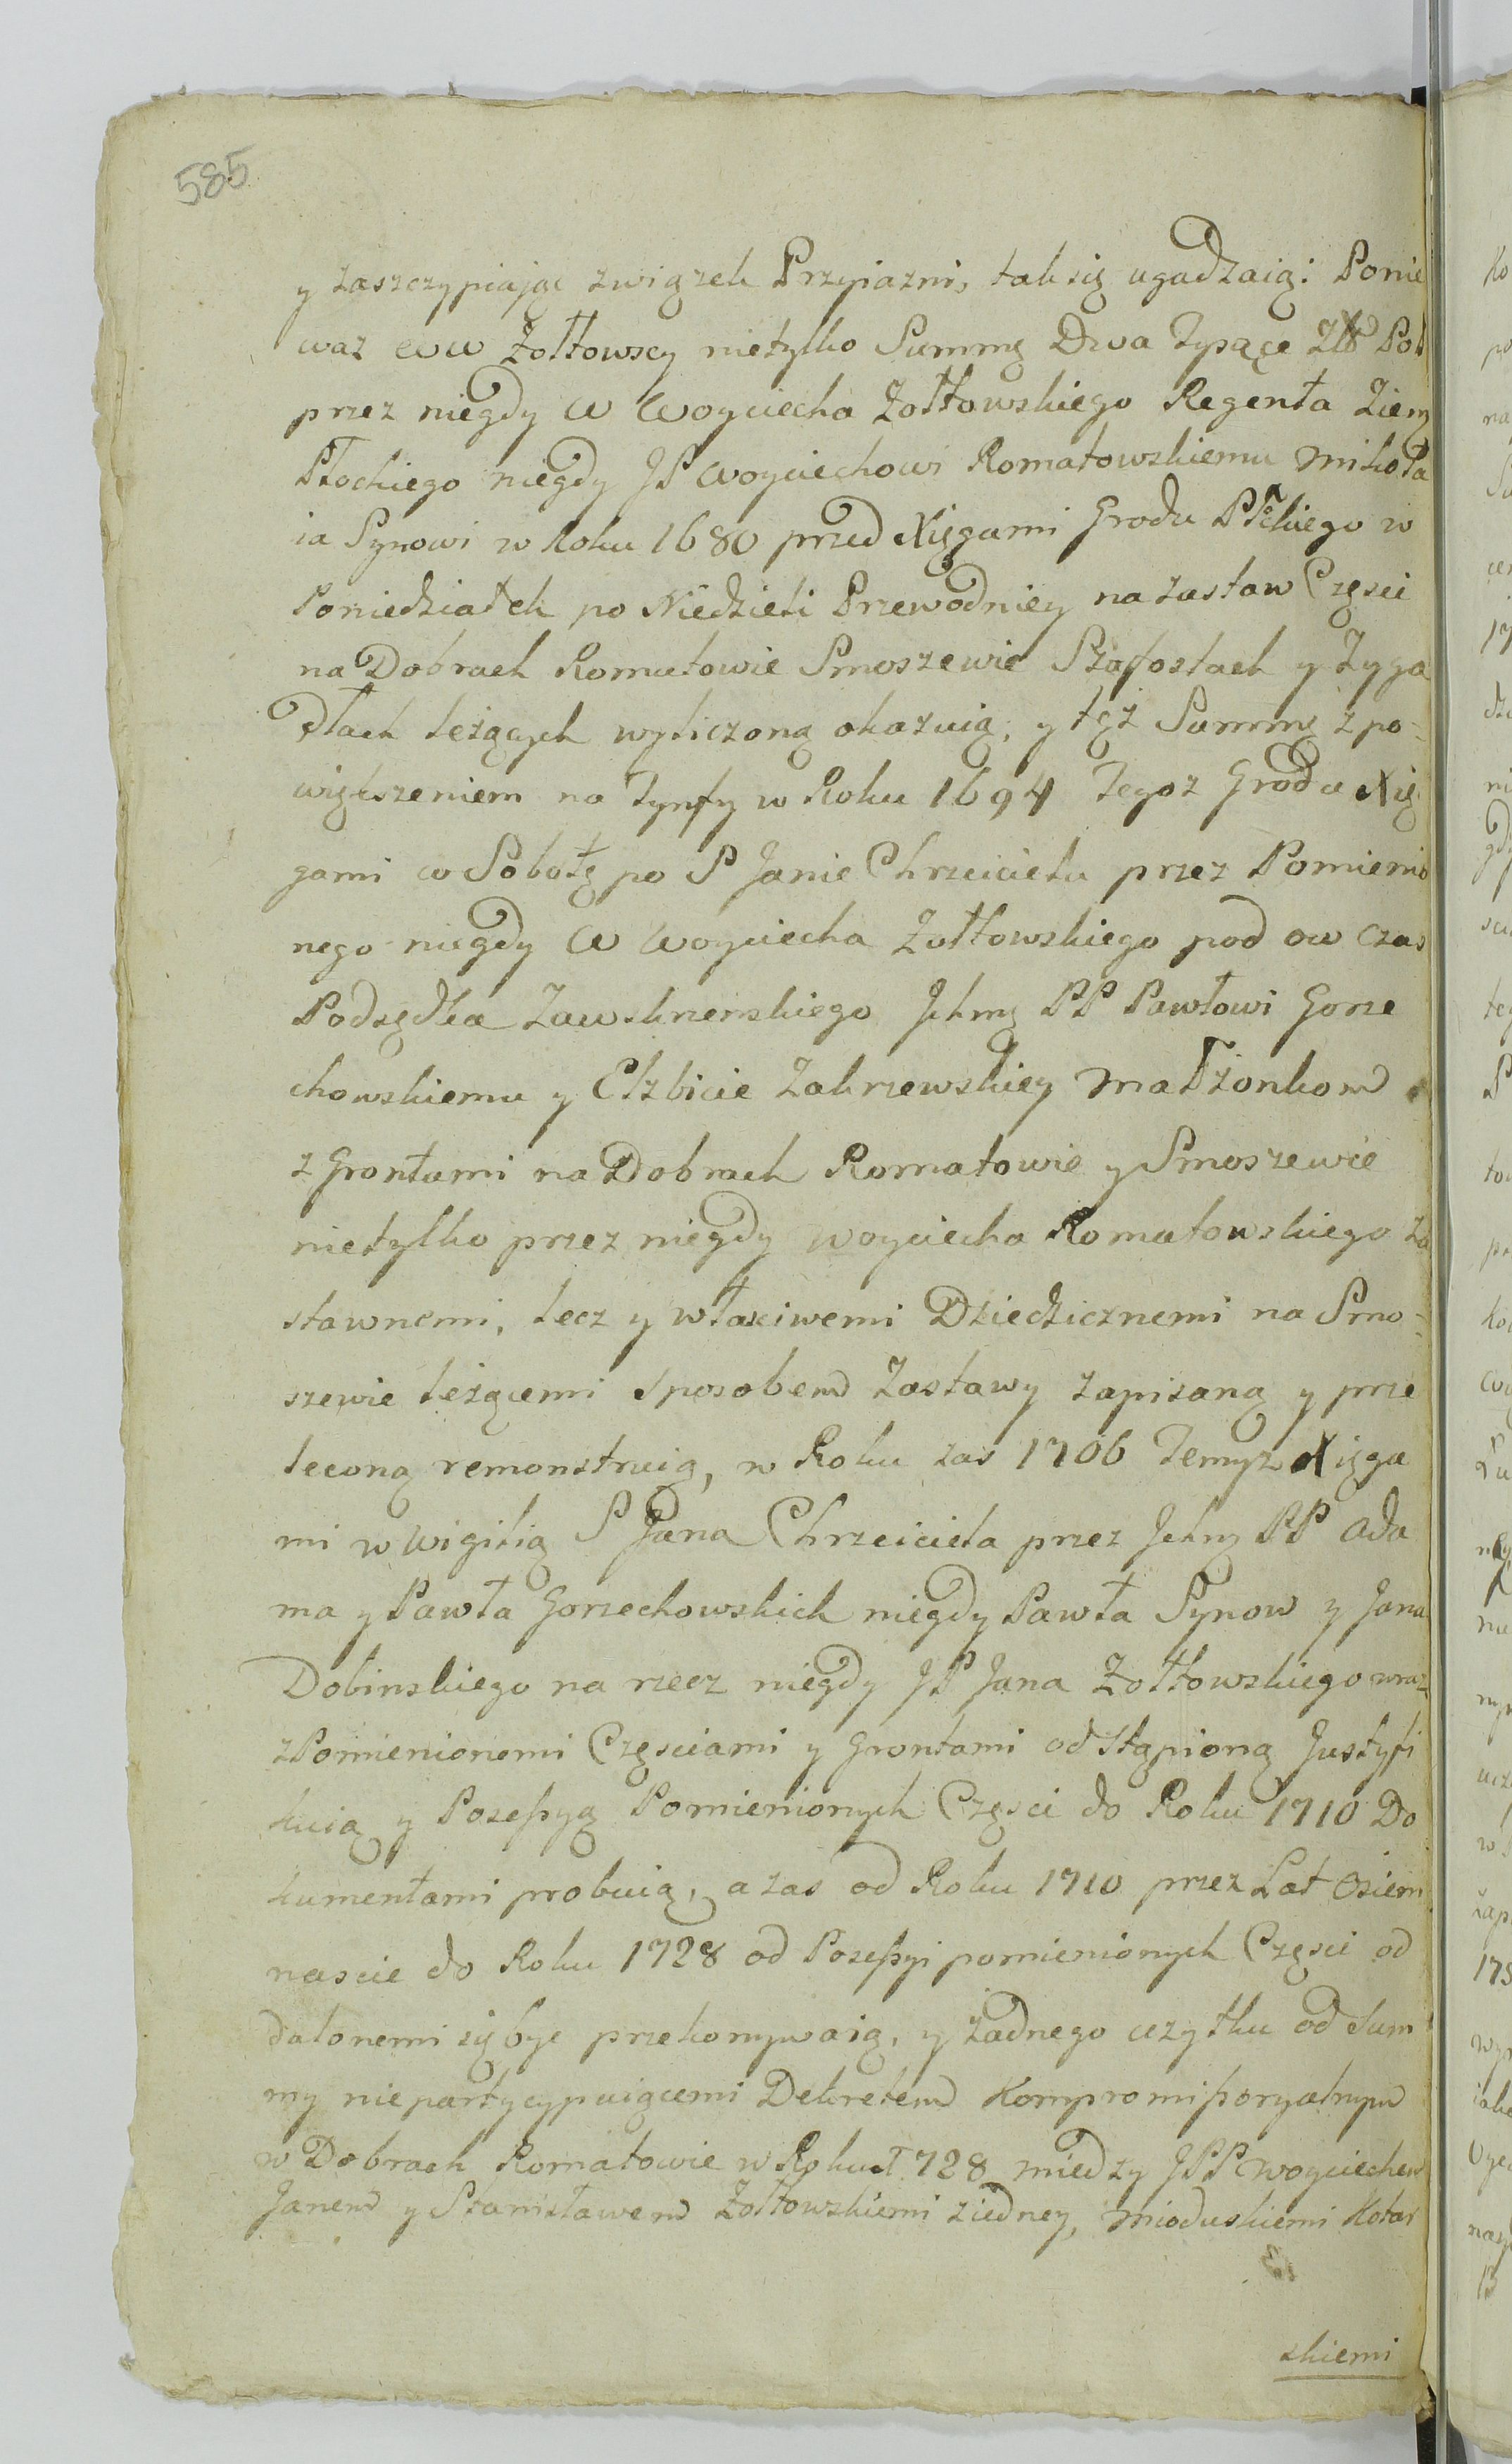 585
y zaszczypiając związek Przyiazni, tak się ugadzaią: Ponie
waz WW Żołtowscy nietylko Summę Dwa Tysące Złł Pol
przez niegdy W Woyciecha Żołtowskiego Regenta Ziem
Płockiego niegdy JP Woyciechowi Romatowskiemu Mikoła
ia Synowi w Roku 1680 przed Xięgami Grodu Płckiego w
Poniedziałek po Niedzieli Przewodniey na zastaw Częsci
na Dobrach Romatowie Smoszewie Szafostach y Zyga
dłach leżących wyliczoną okazuią, y tęż Summę z po-
większeniem na Tynfy w Roku 1694 Tegoz Grodu Xię
gami w Sobotę po S Janie Chrzcicielu przez Pomienio
nego niegdy W Woyciecha Żołtowskiego pod ow czas
Podsędka Zawskrzenskiego Jchmę PP Pawłowi Gorze
chowskiemu y Elzbicie Zakrzewskiey Małżonkom
z Grontami na Dobrach Romatowie y Smoszewie
nietylko przez niegdy Woyciecha Romatowskiego za
stawnemi, lecz y własciwemi Dziedzicznemi na Smo-
szewie leżącemi sposobem Zastawy zapisaną y prze
leconą remonstruią, w Roku zas 1706 Temyz Xięga
mi w Wigilią S Jana Chrzciciela przez Jchmę PP Ada
ma y Pawła Gorzechowskich niegdy Pawła Synow y Jana
Dobinskiego na rzecz niegdy JP Jana Żołtowskiego wraz
z Pomienionemi Częsciami y Grontami odstąpioną Justyfi
kuią y Posessyą Pomienionych Częsci do Roku 1710 Do
kumentami probuią, a zas od Roku 1710 przez Lat Osiem
nascie do Roku 1728 od Posessyi pomienionych Częsci od
dalonemi się byc przekonywaią, y żadnego uzytku od Sum
my niepartycypuiącemi Dekretem Kompromissoryalnym
w Dobrach Romatowie w Roku 1728 między JPP Woyciechem
Janem y Stanisławem Żołtowskiemi ziedney, Mioduskiemi Kotar
skiemi